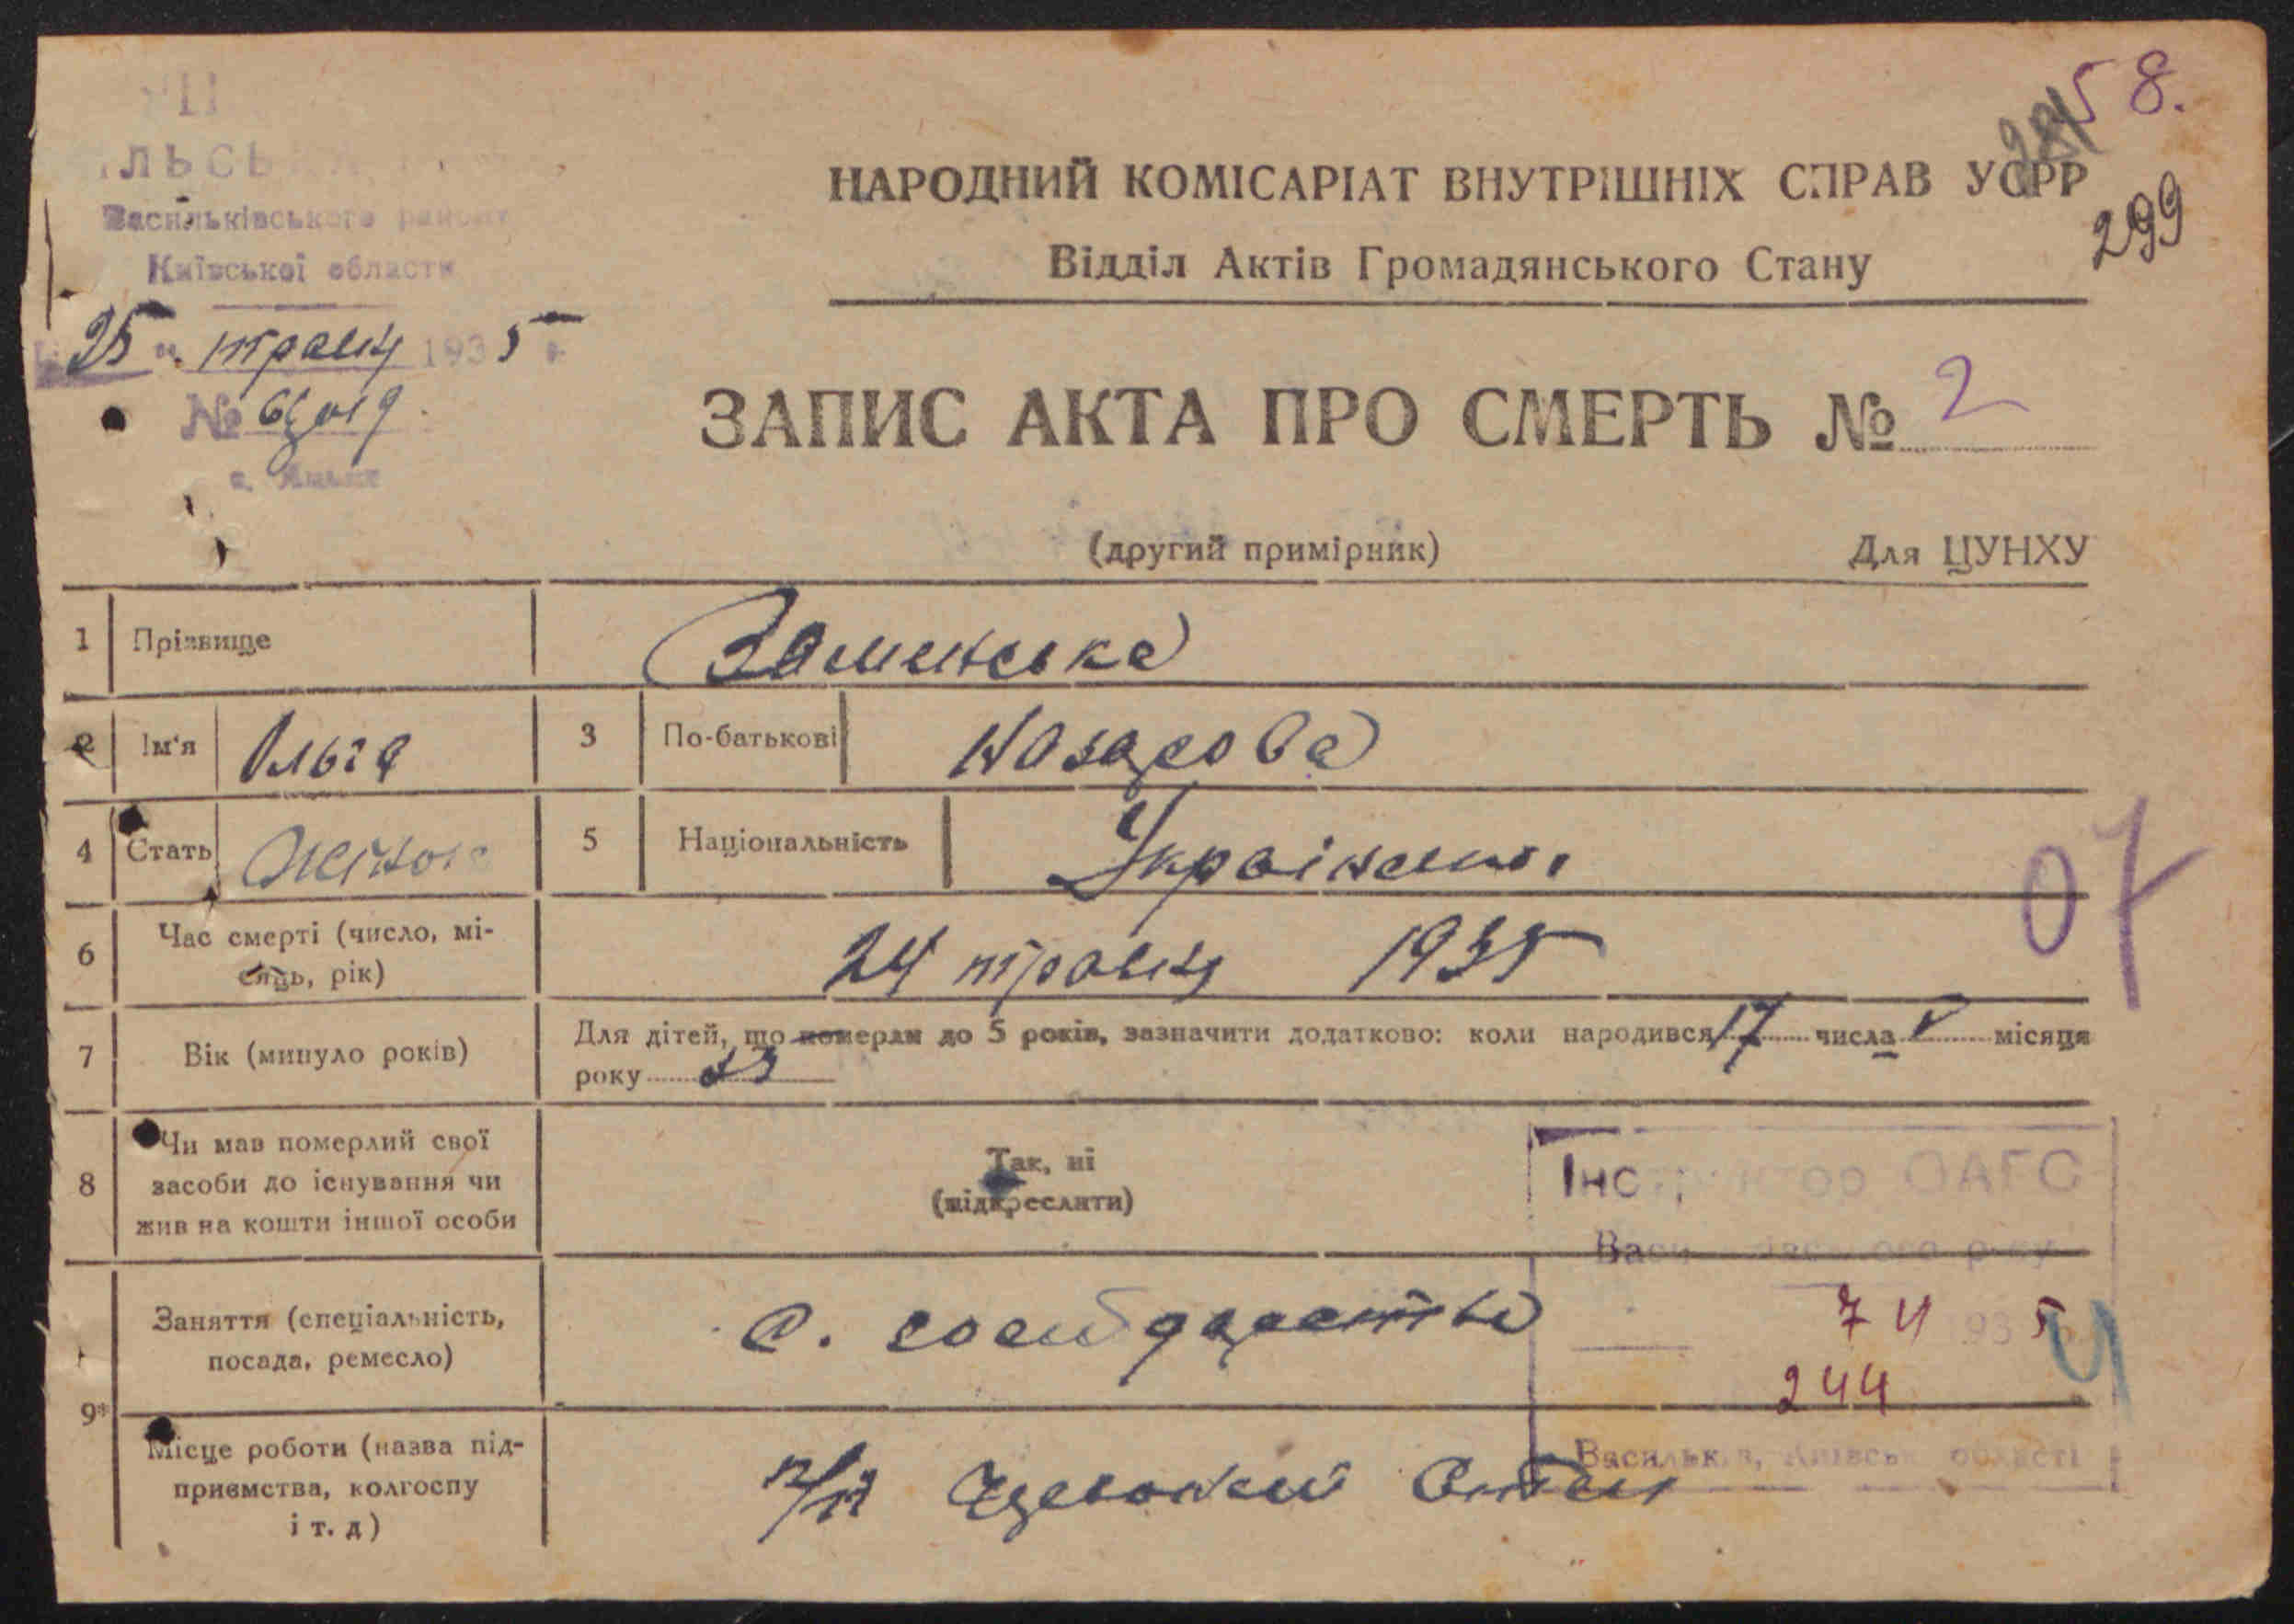 58.
299
ЛЬСЬКА
Васильківського району
Київської области
25 " травн 1935
№
НАРОДНИЙ КОМІСАРІАТ ВНУТРІШНІХ СПРАВ УСРР
Відділ Актів Громадянського Стану
ЗАПИС АКТА ПРО СМЕРТЬ № 2
(другий примірник) Для ЦУНХУ
1 Прізвище Заменська
2 Ім'я Ольга 3 По-батькові Назарова
4 Стать Жіноч 5 Національність Українська
07
6 Час смерті (число, мі-
сяць, рік) 24 травн 1935
7 Вік (минуло років) Для дітей, що померли до 5 років, зазначити додатково: коли народився 17 числа V місяця
року 33
8 Чи мав померлий свої
засоби до існування чи
жив на кошти іншої особи
Так, ні
(підкреслити)
Інструктор ОАГС
Васильківського р-ну
7 VI 1935
244
Васильків, Київськ області
9*
Заняття (спеціальність,
посада, ремесло)
Місце роботи (назва під-
приємства, колгоспу
і т. д)